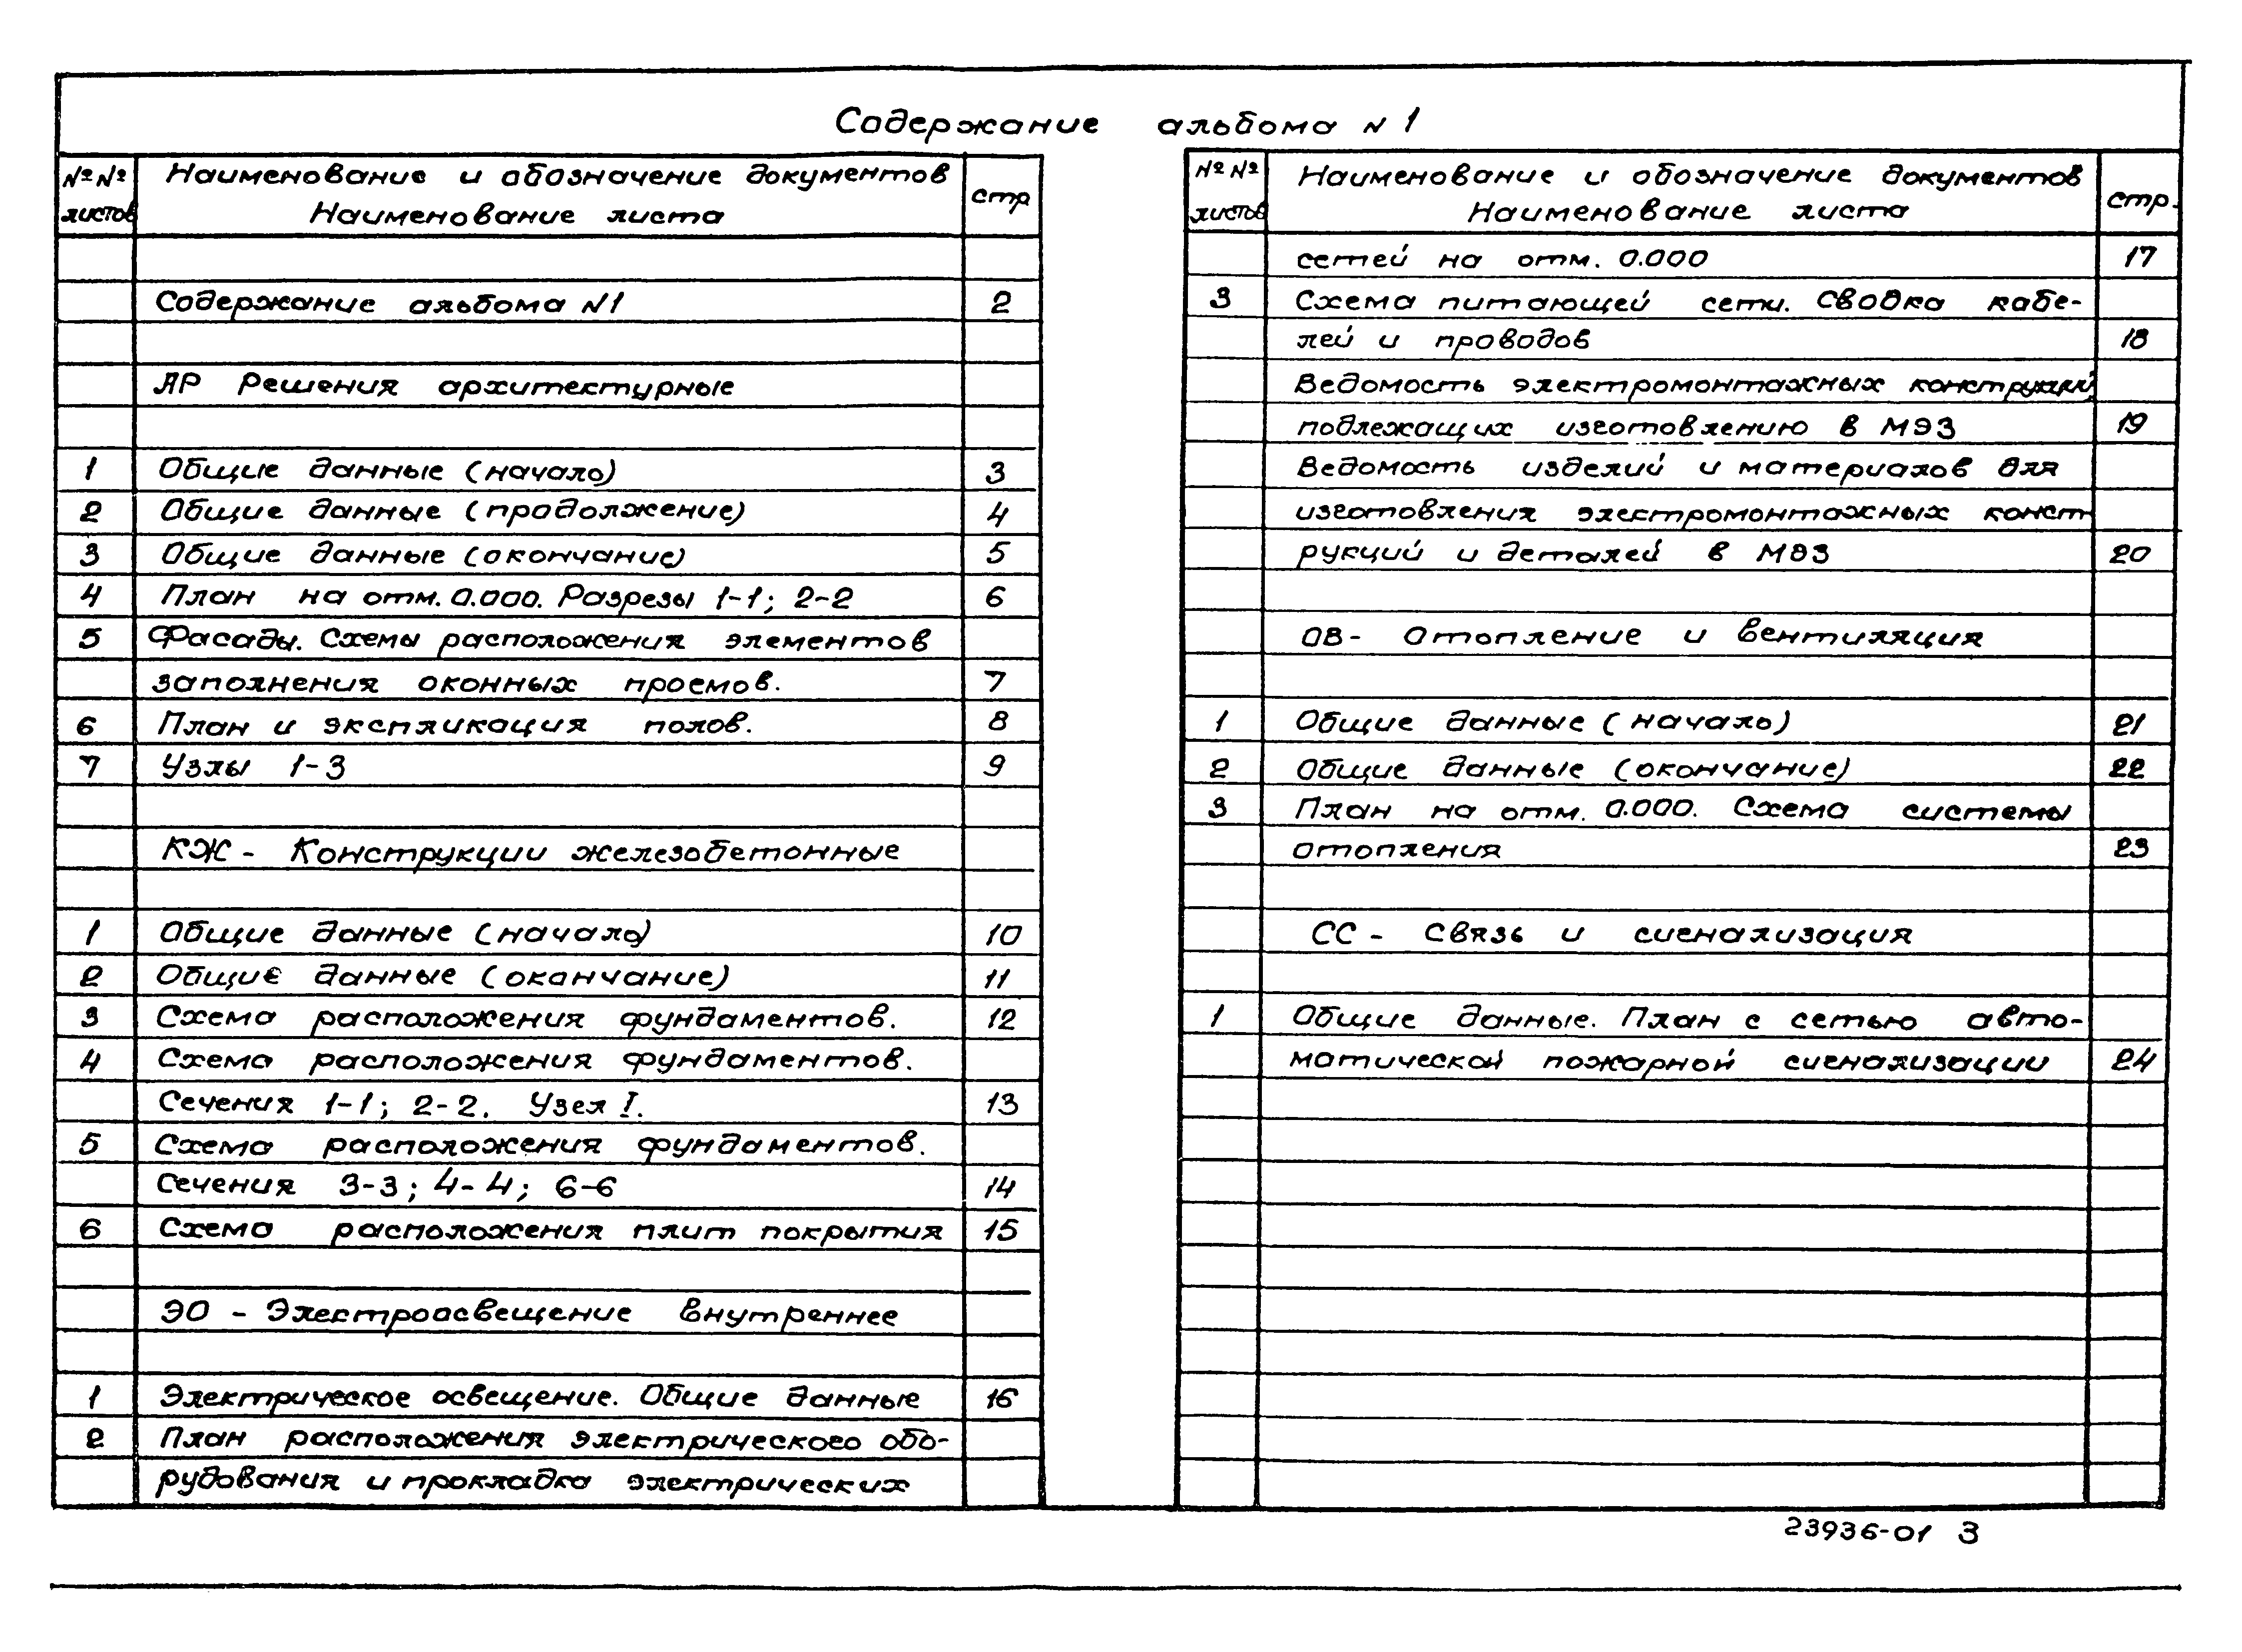 Содержание альбома N 1
№№ листов Наименование и обозначение документов Наименование листа стр
Содержание альбома N1 2
АР Решения архитектурные
1 Общие данные (начало) 3
2 Общие данные (продолжение) 4
3 Общие данные (окончание) 5
4 План на отм. 0.000. Разрезы 1-1; 2-2 6
5 Фасады. Схемы расположения элементов
заполнения оконных проемов. 7
6 План и экспликация полов. 8
7 Узлы 1-3 9
КЖ - Конструкции железобетонные
1 Общие данные (начало) 10
2 Общие данные (окончание) 11
3 Схема расположения фундаментов. 12
4 Схема расположения фундаментов.
Сечения 1-1; 2-2. Узел I. 13
5 Схема расположения фундаментов.
Сечения 3-3; 4-4; 6-6 14
6 Схема расположения плит покрытия 15
ЭО - Электроосвещение внутреннее
1 Электрическое освещение. Общие данные 16
2 План расположения электрического обо-
рудования и прокладка электрических
№№ листов Наименование и обозначение документов Наименование листа стр.
сетей на отм. 0.000 17
3 Схема питающей сети. Сводка кабе-
лей и проводов 18
Ведомость электромонтажных конструкций,
подлежащих изготовлению в МЭЗ 19
Ведомость изделий и материалов для
изготовления электромонтажных конст-
рукций и деталей в МЭЗ 20
ОВ- Отопление и вентиляция
1 Общие данные (начало) 21
2 Общие данные (окончание) 22
3 План на отм. 0.000. Схема системы
отопления 23
СС - Связь и сигнализация
1 Общие данные. План с сетью авто-
матической пожарной сигнализации 24
23936-01 3